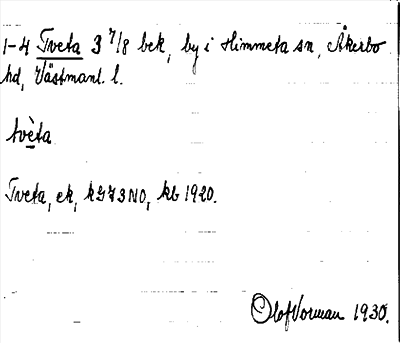 1-4 Tveta 3 7/8 bek, by i Himmeta sn, Åkerbo
hd, Västmanl. l.
tvèta
Tveta, ek, kg 73 NO, kb 1920.
Olof Vorman 1930.